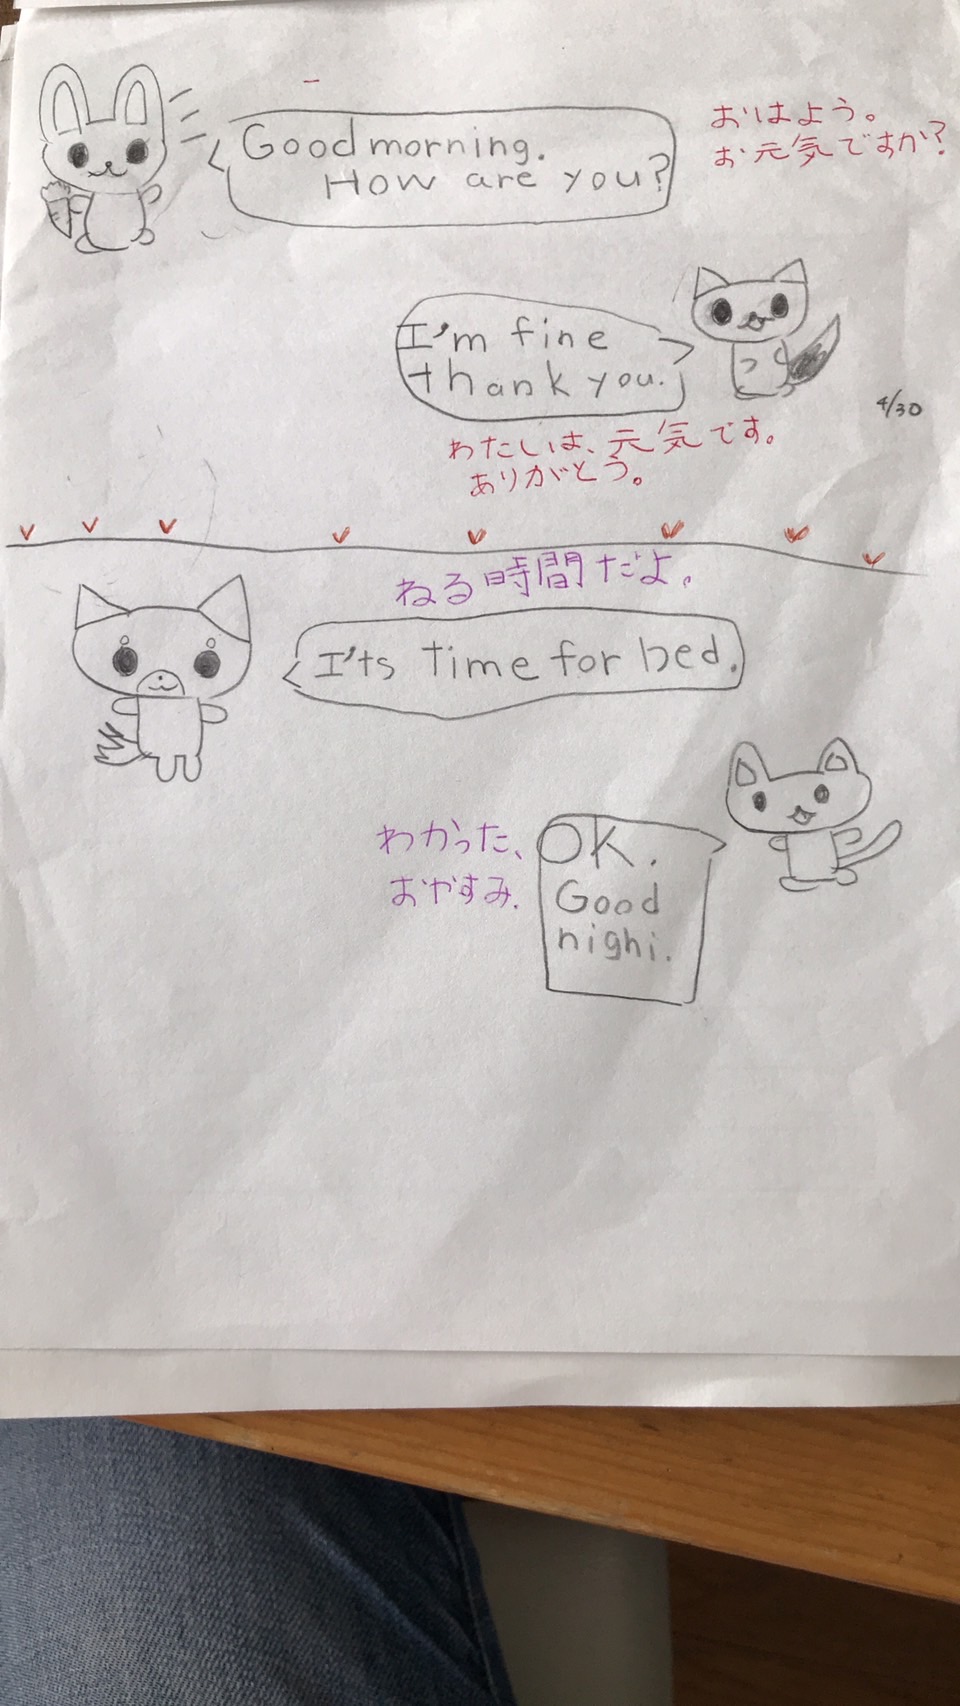 Good morning.
How are you?
おはよう。
お元気ですか?
I'm fine
thank you.
4/30
わたしは、元気です。
ありがとう。
ねる時間だよ。
I'ts time for bed.
わかった、
おやすみ.
OK.
Good
nighi.